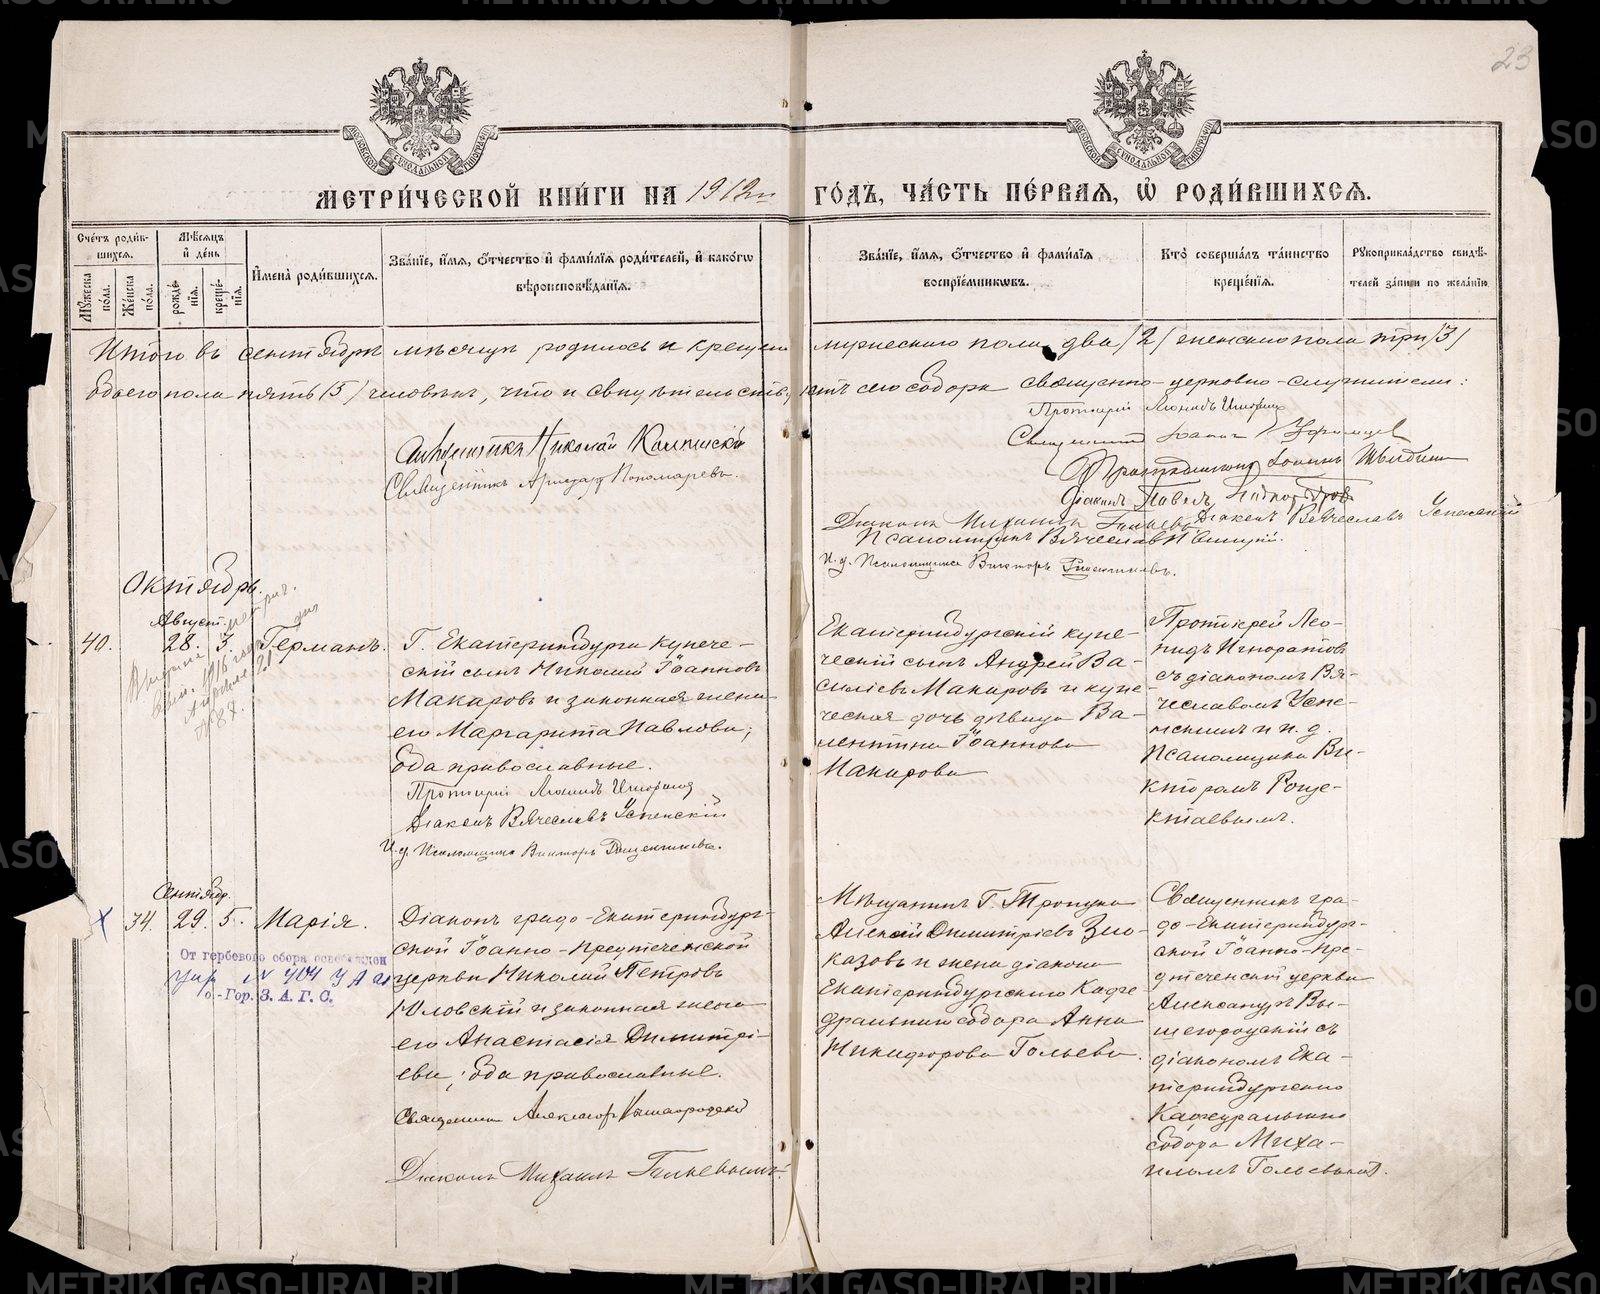 23
МОСКОВСКОЙ СѴНОДАЛЬНОЙ ТИПОГРАФІИ
МОСКОВСКОЙ СѴНОДАЛЬНОЙ ТИПОГРАФІИ
МЕТРИ́ЧЕСКОЙ КНИ́ГИ НА 1912 ГО́ДЪ, ЧА́СТЬ ПЕ́РВАЯ, Ѡ РОДИ́ВШИХСЯ.
Сче́тъ роди́в-
шихся.
Мужеска по́ла.
Же́нска по́ла.
Мѣ́сяцъ
и҆ де́нь
рожде́-нїя.
креще́-нїя.
И҆мена̀ роди́вшихся.
Зва́нїе, и҆́мя, ѻ҆́тчество и҆ фами́лїя роди́телей, и҆ како́гѡ
вѣроисповѣ́данїя.
Зва́нїе, и҆́мя, ѻ҆́тчество и҆ фами́лїя
воспрїе́мникѡвъ.
Кто̀ соверша́лъ та́инство
креще́нїя.
Рꙋкоприкла́дство свидѣ́-
телей за́писи по жела́нїю
Итого въ сентябрѣ мѣсяцѣ родилось и крещено мужескаго пола два /2/ женскаго пола три /3/
обоего пола пять /5/ человѣкъ, что и свидѣтельствуютъ сего собора священно-церковно-служители:
Протоіерей Леонидъ Игноратовъ
Священникъ Іоаннъ
Священникъ Николай
Священникъ Пономаревъ.
Протодіаконъ Іоаннъ
Діаконъ Павелъ
Діаконъ Михаилъ Гольевъ Діаконъ Вячеславъ Успенскій
Псаломщикъ Вячеславъ
И. д. Псаломщика Викторъ
Октябрь.
Августъ.
40.
28.
3.
Германъ.
Г. Екатеринбурга купече-
скій сынъ Николай Іоанновъ
Макаровъ и законная жена
его Маргарита Павлова;
оба православные.
Протоіерей Леонидъ Игноратовъ
Діаконъ Вячеславъ Успенскій
И. д. Псаломщика Викторъ
Екатеринбургскій купе-
ческій сынъ Андрей Ва-
силіевъ Макаровъ и купе-
ческая дочь дѣвица Ва-
лентина Іоаннова
Макарова
Протоіерей Лео-
нидъ Игноратовъ
съ діакономъ Вя-
чеславомъ Успе-
нскимъ и и. д.
Псаломщика Ви-
кторомъ Роще-
ктаевымъ.
Сентябрь.
34.
29.
5.
Марія.
От гербового сбора освобожден
№ 404 У А
о.-Гор. З. А. Г. С.
Діаконъ градо-Екатеринбург-
ской Іоанно-Предтеченской
церкви Николай Петровъ
Юловскій и законная жена
его Анастасія Димитрі-
ева; оба православные.
Священникъ Александръ Вышегородскій
Діаконъ Михаилъ
Мѣщанинъ Г. Троицка
Алексѣй Димитріевъ Зло-
казовъ и жена діакона
Екатеринбургскаго Кафе-
дральнаго собора Анна
Никифорова Гольева.
Священникъ гра-
до-Екатеринбург-
ской Іоанно-Пре-
дтеченской церкви
Александръ Вы-
шегородскій съ
діакономъ Ека-
теринбургскаго
Кафедральнаго
собора Миха-
иломъ Гольевымъ.
METRIKI.GASO-URAL.RU